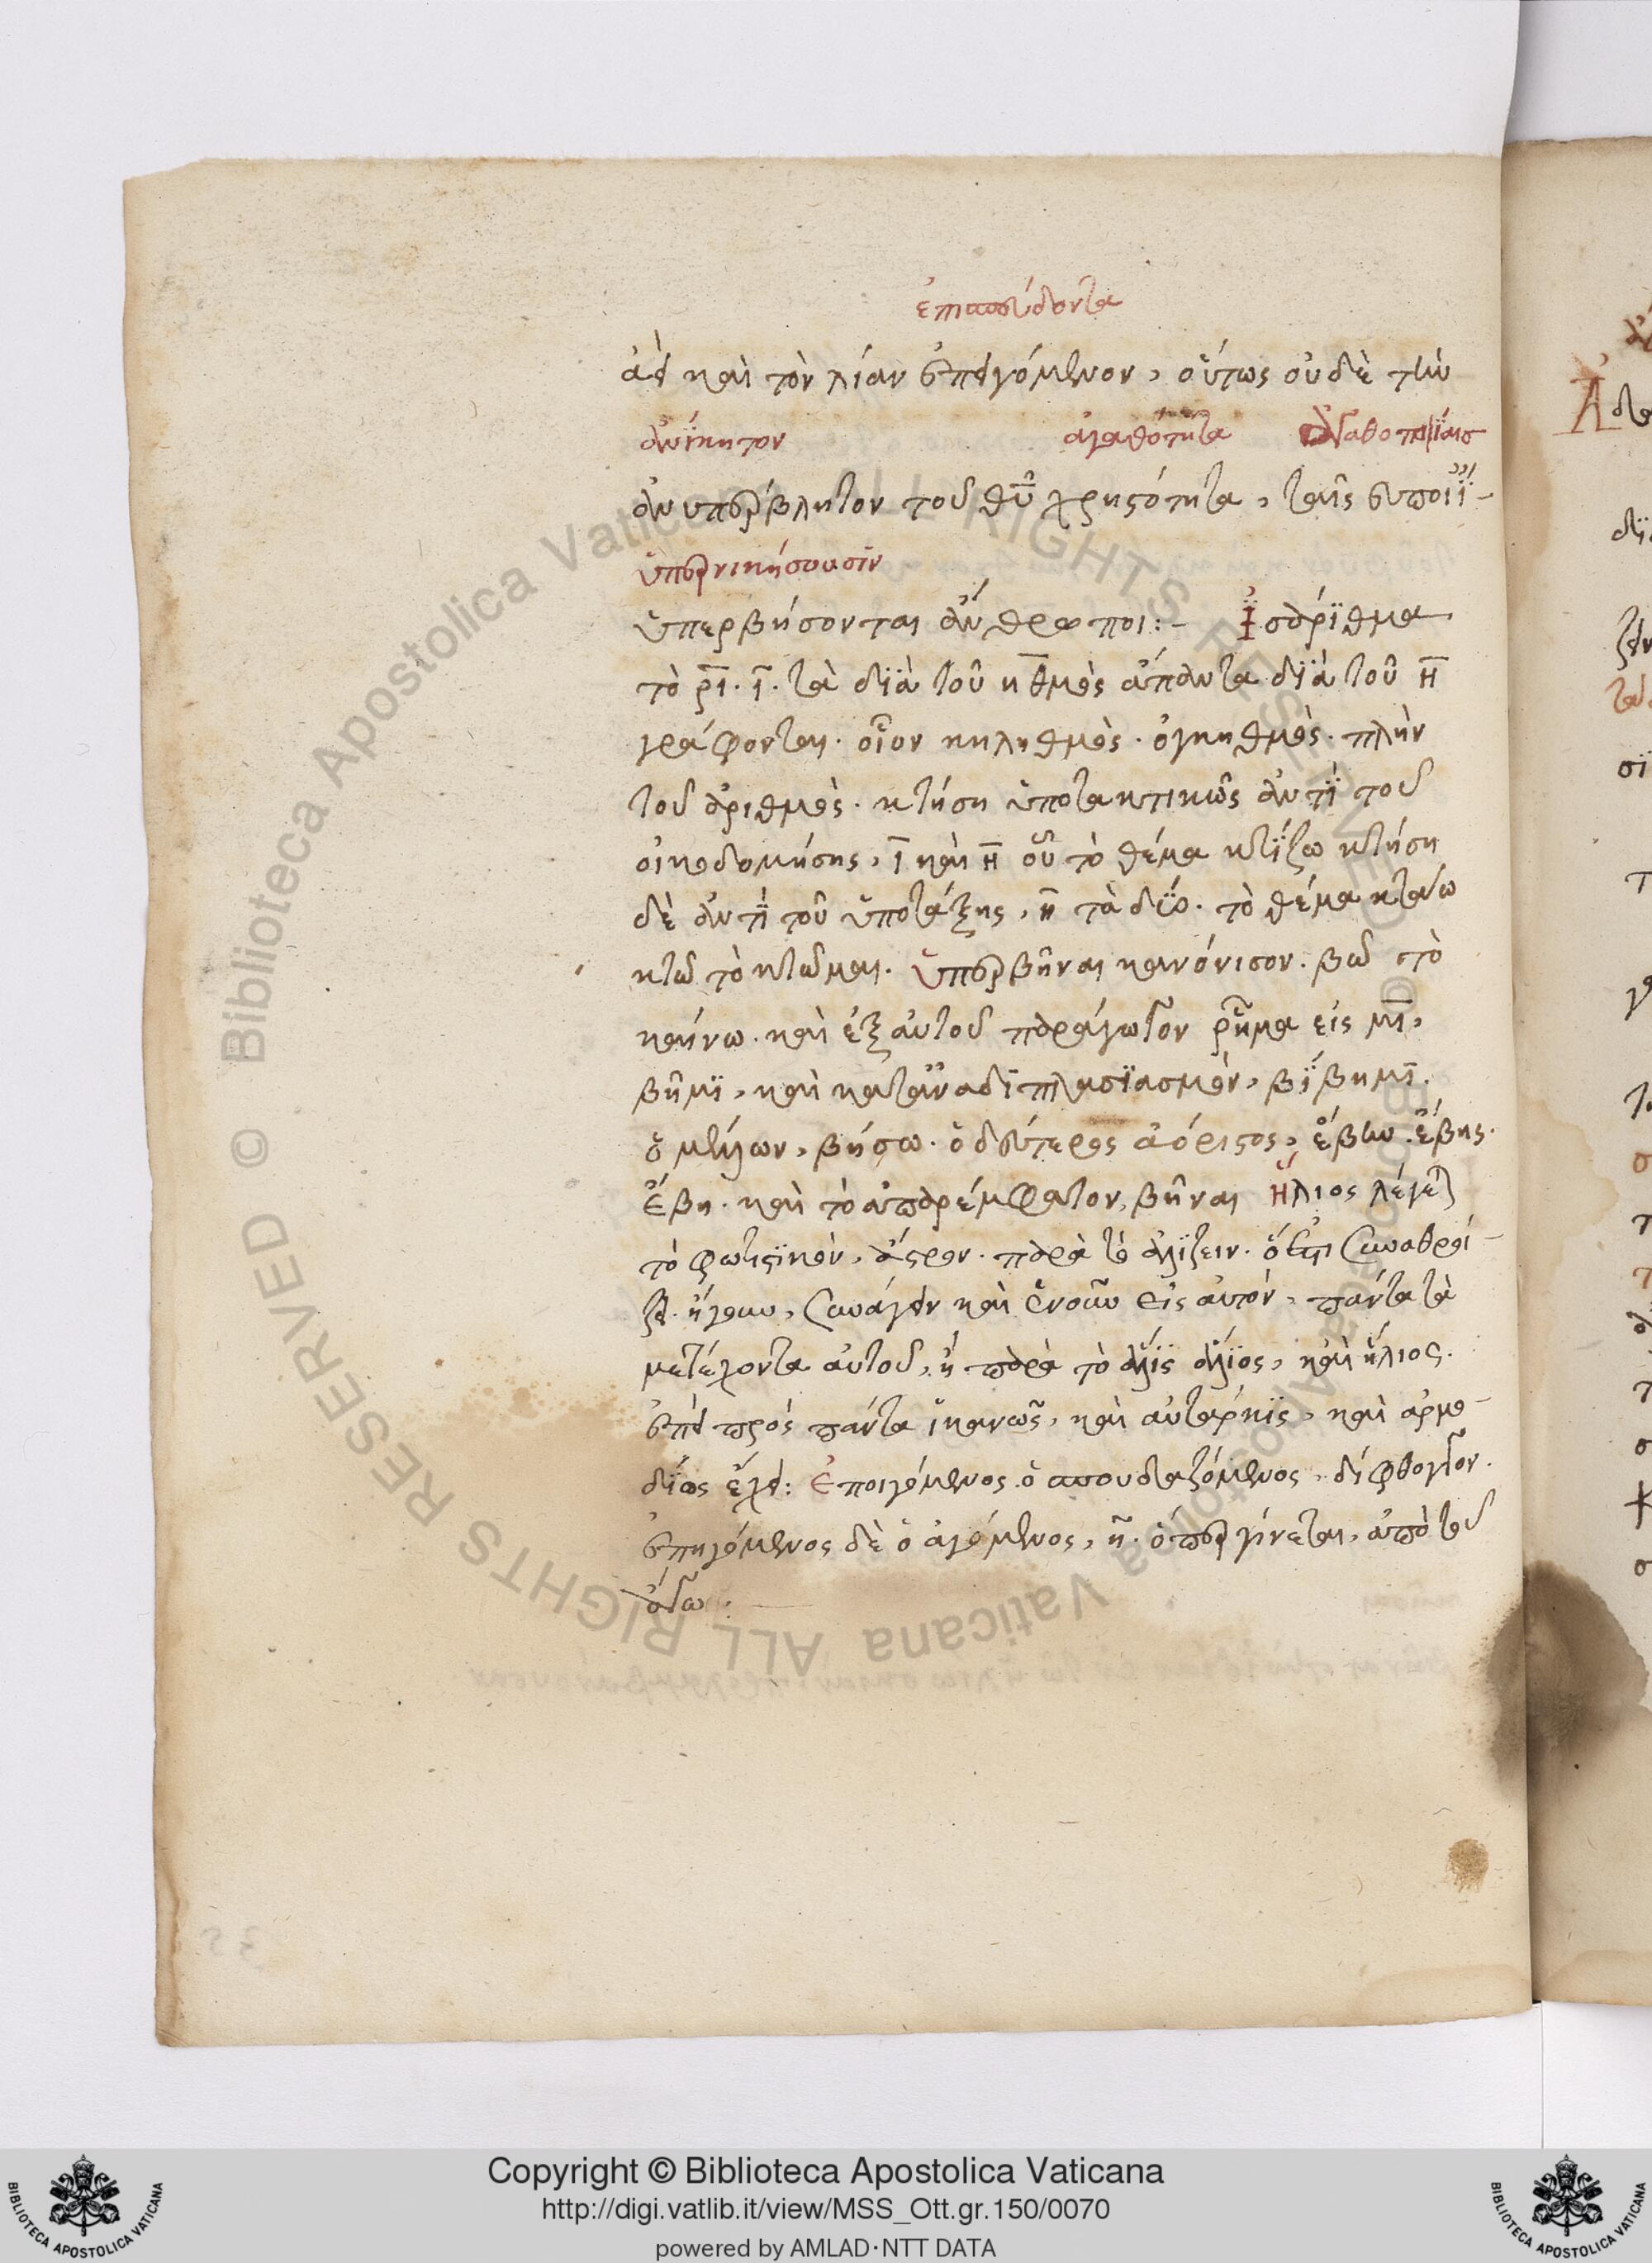 ἐπισπεύδοντα
ἀεὶ καὶ τὸν λίαν ἐπειγόμενον, οὕτως οὐδὲ τὴν
ἀνίκητον ἀγαθότητα
ἀνυπέρβλητον τοῦ θῦ χρηστότητα, ταῖς εὐποιΐ-
ὑπερνικήσουσϊν
ὑπερβήσονται ἄνθρωποι:- Ἰσάρϊθμα
τὸ ρῑ. ῑ. τὰ δϊὰ τοῦ κ θμὸς ἅπαντα δϊὰ τοῦ η̄
γράφονται. οἷον κηληθμὸς. ὀγκηθμὸς. πλὴν
τοῦ ἀριθμὸς. κτήση ὑποτακτικῶς ἀντῒ τοῦ
οἰκοδομήσης, ῑ καὶ η̄ οὗ τὸ θέμα κτΐζω κτήση
δὲ ἀντῒ τοῦ ὑποτάξης, η̄ τὰ δύο. τὸ θέμα κτάω
κτῶ τὸ κτῶμαι. ὑπερβῆναι κανόνισον. βῶ στὸ
καίνω. καὶ ἐξ αὐτοῦ παράγωγον ρῆμα εἰς μῑ,
βῆμϊ, καὶ κατ' ἀναδϊπλασϊασμὸν, βΐβημϊ.
ὁ μέλλων, βήσω. ὁ δεύτερος ἀόριστος, ἔβην. ἔβης.
ἔβη. καὶ τὸ ἀπαρέμφατον, βῆναι ἥλιος λέγεται
τὸ φωτιστϊκὸν, ἄστρον. παρὰ τὸ ἁλΐζειν. ὅ ἐστι συναθροί-
ζει. ἤγουν, συνάγειν καὶ ἑνοῦν εἰς αὐτόν, πάντα τὰ
μετέχοντα αὐτοῦ, ἢ παρὰ τὸ ἅλϊς ἅλϊος, καὶ ἥλιος.
ἐπεὶ πρός πάντα ἱκανῶς, καὶ αὐτάρκϊς, καὶ αρμο-
δΐως ἔχει: ἐποιγόμενος ὁ σπουδαζόμενος, δίφθογγον.
ἐπηγόμενος δὲ ὁ ἀγόμενος, η̄. ὅπερ γίνεται, ἀπὸ τοῦ
ἄγω.
Copyright © Biblioteca Apostolica Vaticana
http://digi.vatlib.it/view/MSS_Ott.gr.150/0070
powered by AMLAD·NTT DATA